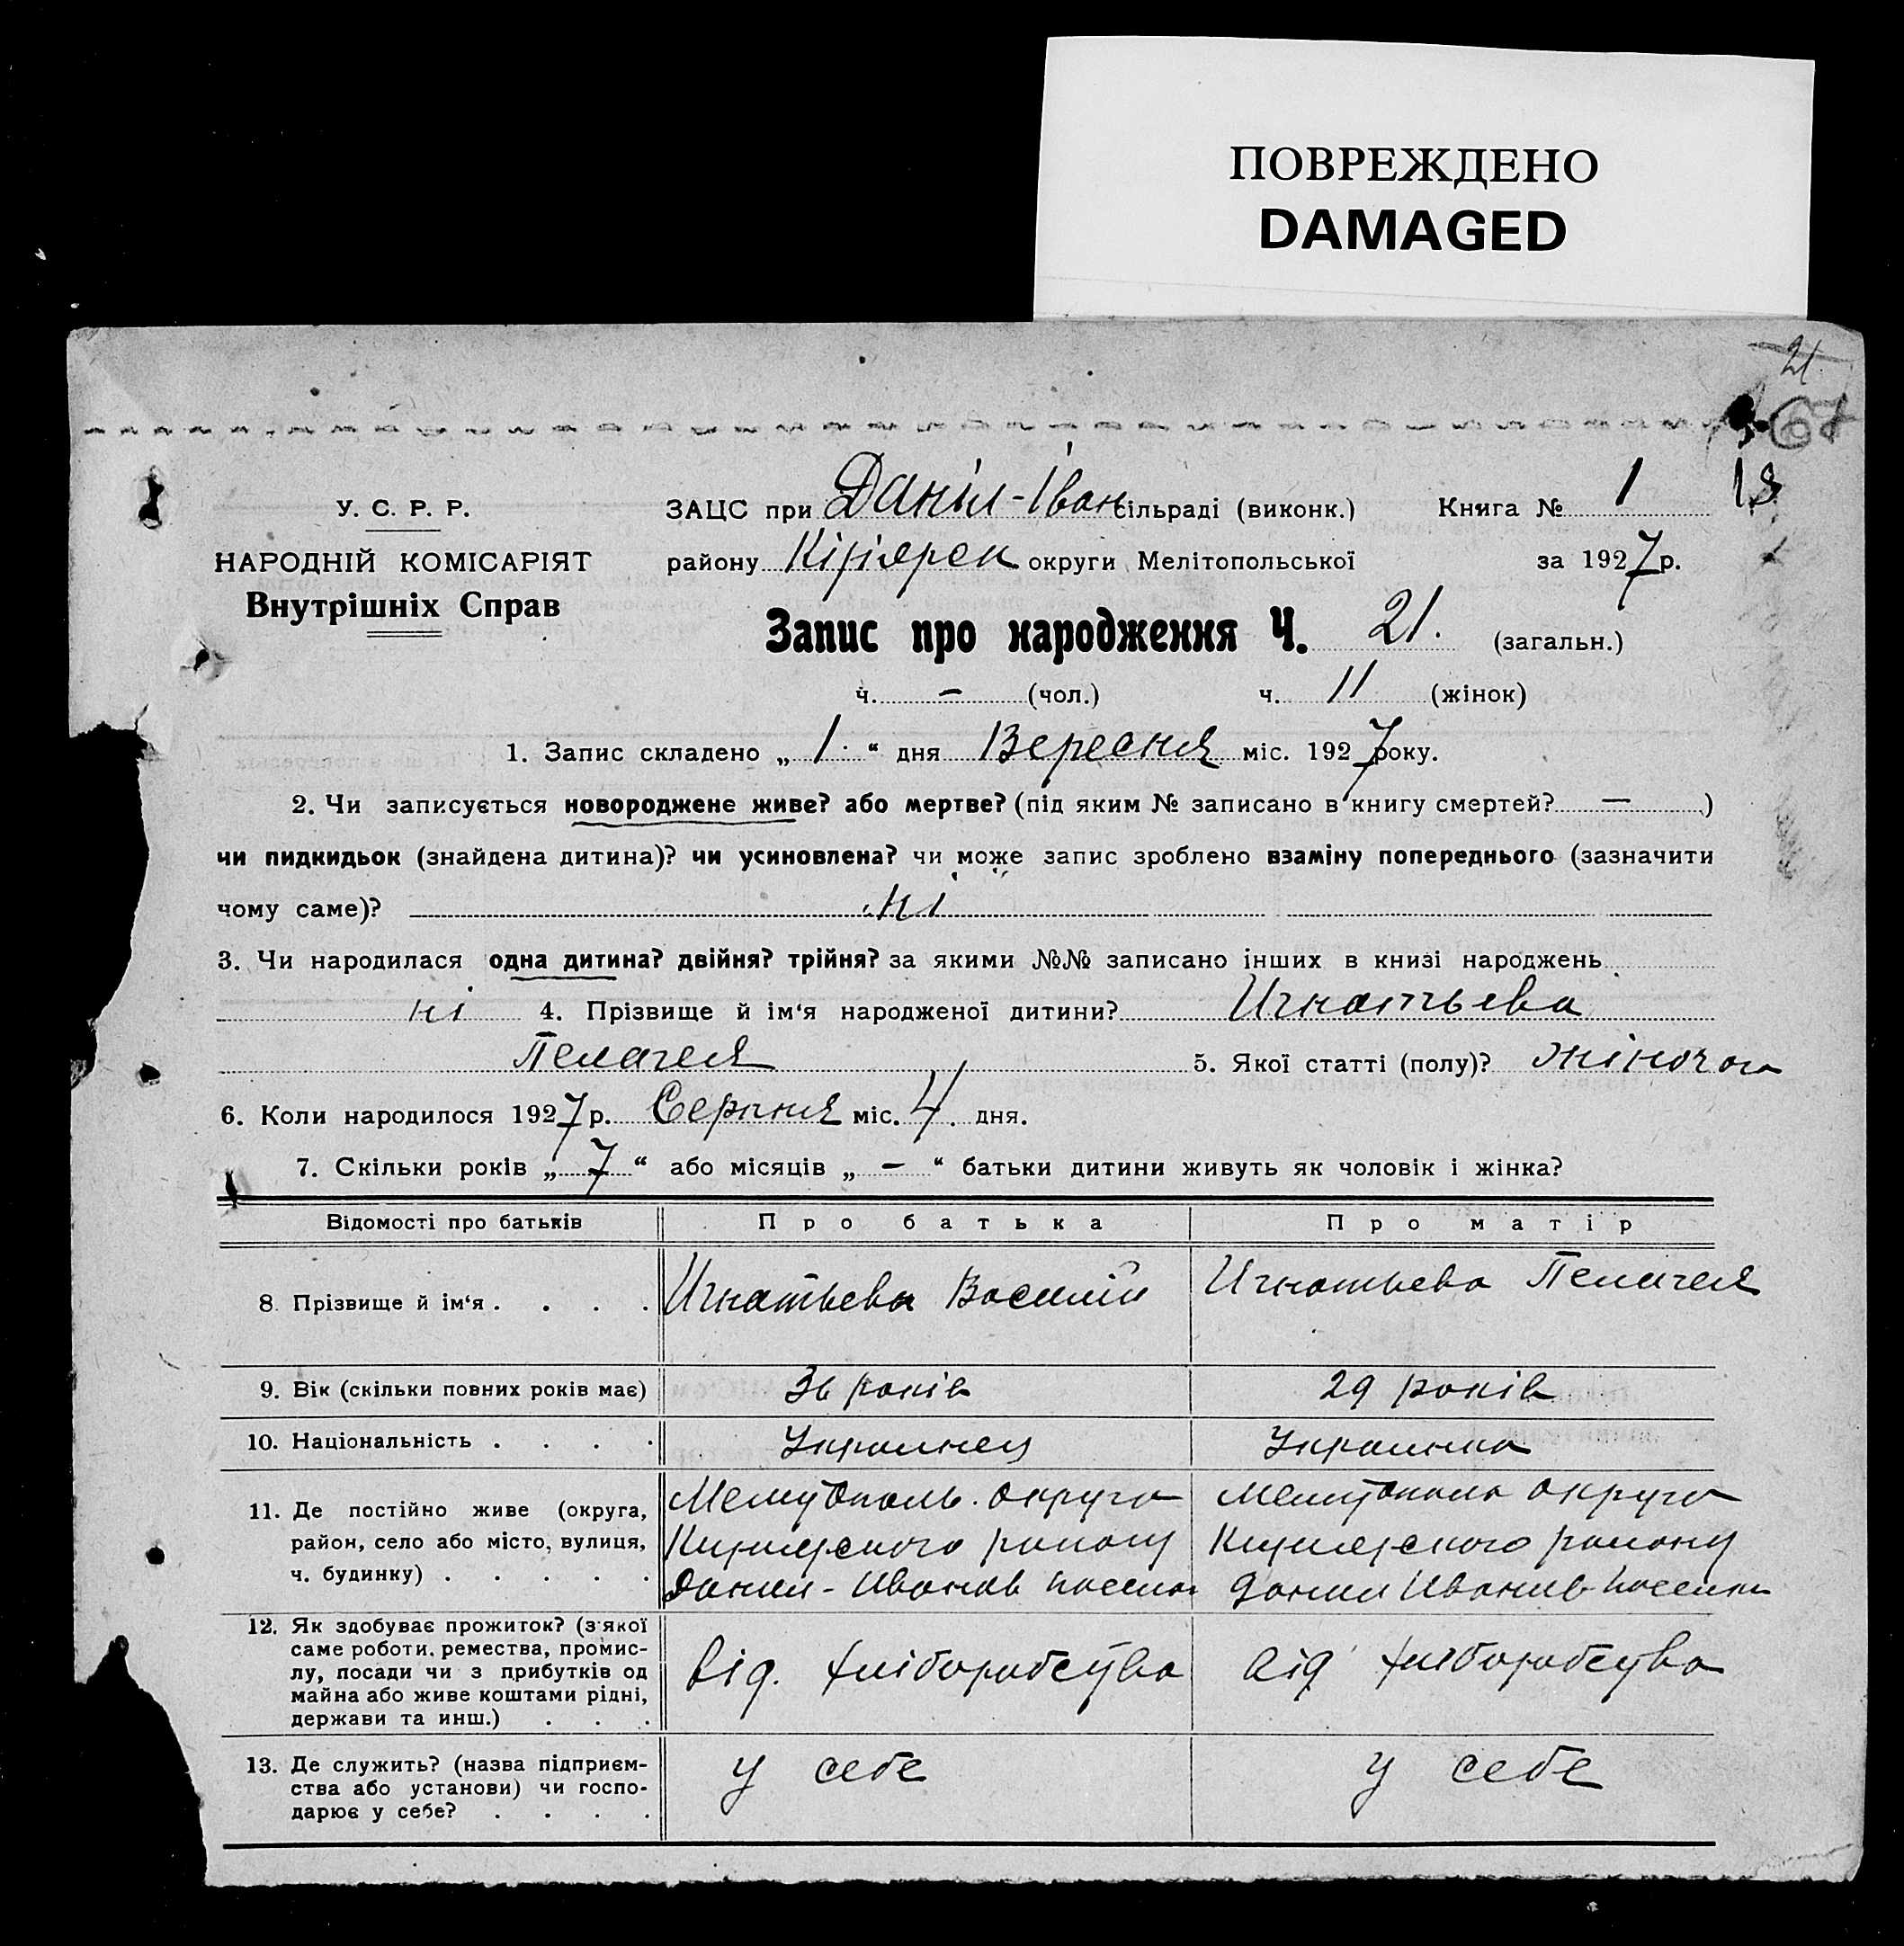 ПОВРЕЖДЕНО
DAMAGED
21.
67
У. С. Р. Р.
НАРОДНІЙ КОМІСАРІЯТ
Внутрішніх Справ
ЗАЦС при Даніл-Іван сільраді (виконк.) Книга № 1 18
району округи Мелітопольської за 1927 р.
Запис про народження Ч. 21. (загальн.)
ч. — (чол.) ч. 11 (жінок)
1. Запис складено „ 1. “ дня Вересня міс. 1927 року.
2. Чи записується новороджене живе? або мертве? (під яким № записано в книгу смертей? — )
чи пидкидьок (знайдена дитина)? чи усиновлена? чи може запис зроблено взаміну попереднього (зазначити
чому саме)? ні
3. Чи народилася одна дитина? двійня? трійня? за якими №№ записано інших в книзі народжень
ні 4. Прізвище й ім‘я народженої дитини? Игнатьева
Пелагея 5. Якої статті (полу)? жіночоі
6. Коли народилося 1927 р. Серпня міс. 4. дня.
7. Скільки років „ 7 “ або місяців „ — “ батьки дитини живуть як чоловік і жінка?
Відомості про батьків Про батька Про матір
8. Прізвище й ім‘я . . . . Игнатьева Василий Игнатьева Пелагея
9. Вік (скільки повних років має) 36 років 29 років
10. Національність . . . . Украинец Украинка
11. Де постійно живе (округа, округа округа
район, село або місто, вулиця, району району
ч. будинку) . . . . . Данил-Иванов Данил Иванив
12. Як здобуває прожиток? (з якої
саме роботи, ремества, промис-
лу, посади чи з прибутків од від. хліборобства від хліборобства
майна або живе коштами рідні,
держави та инш.) . . .
13. Де служить? (назва підприєм- у себе у себе
ства або установи) чи госпо-
дарює у себе? . . . .